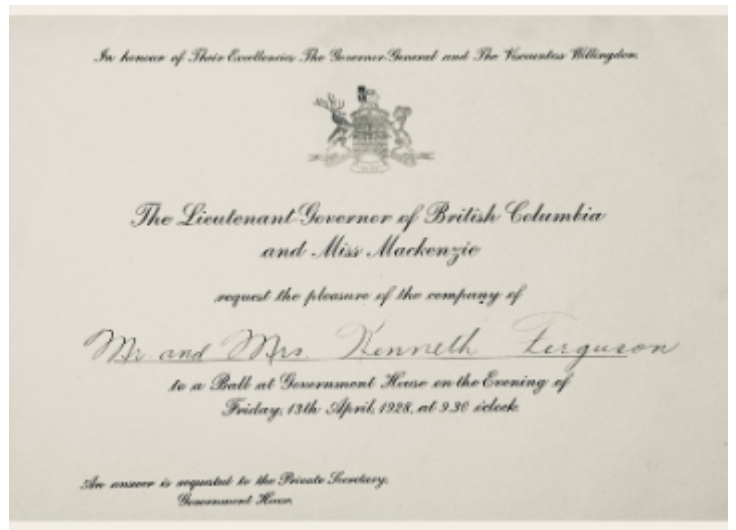 In honour of Their Excellencies The Governor-General and The Viscountess Willingdon.
The Lieutenant-Governor of British Columbia
and Miss Mackenzie
request the pleasure of the company of
Mr. and Mrs. Kenneth Ferguson
to a Ball at Government House on the Evening of
Friday, 13th April, 1928, at 9.30 o'clock.
An answer is requested to the Private Secretary,
Government House.